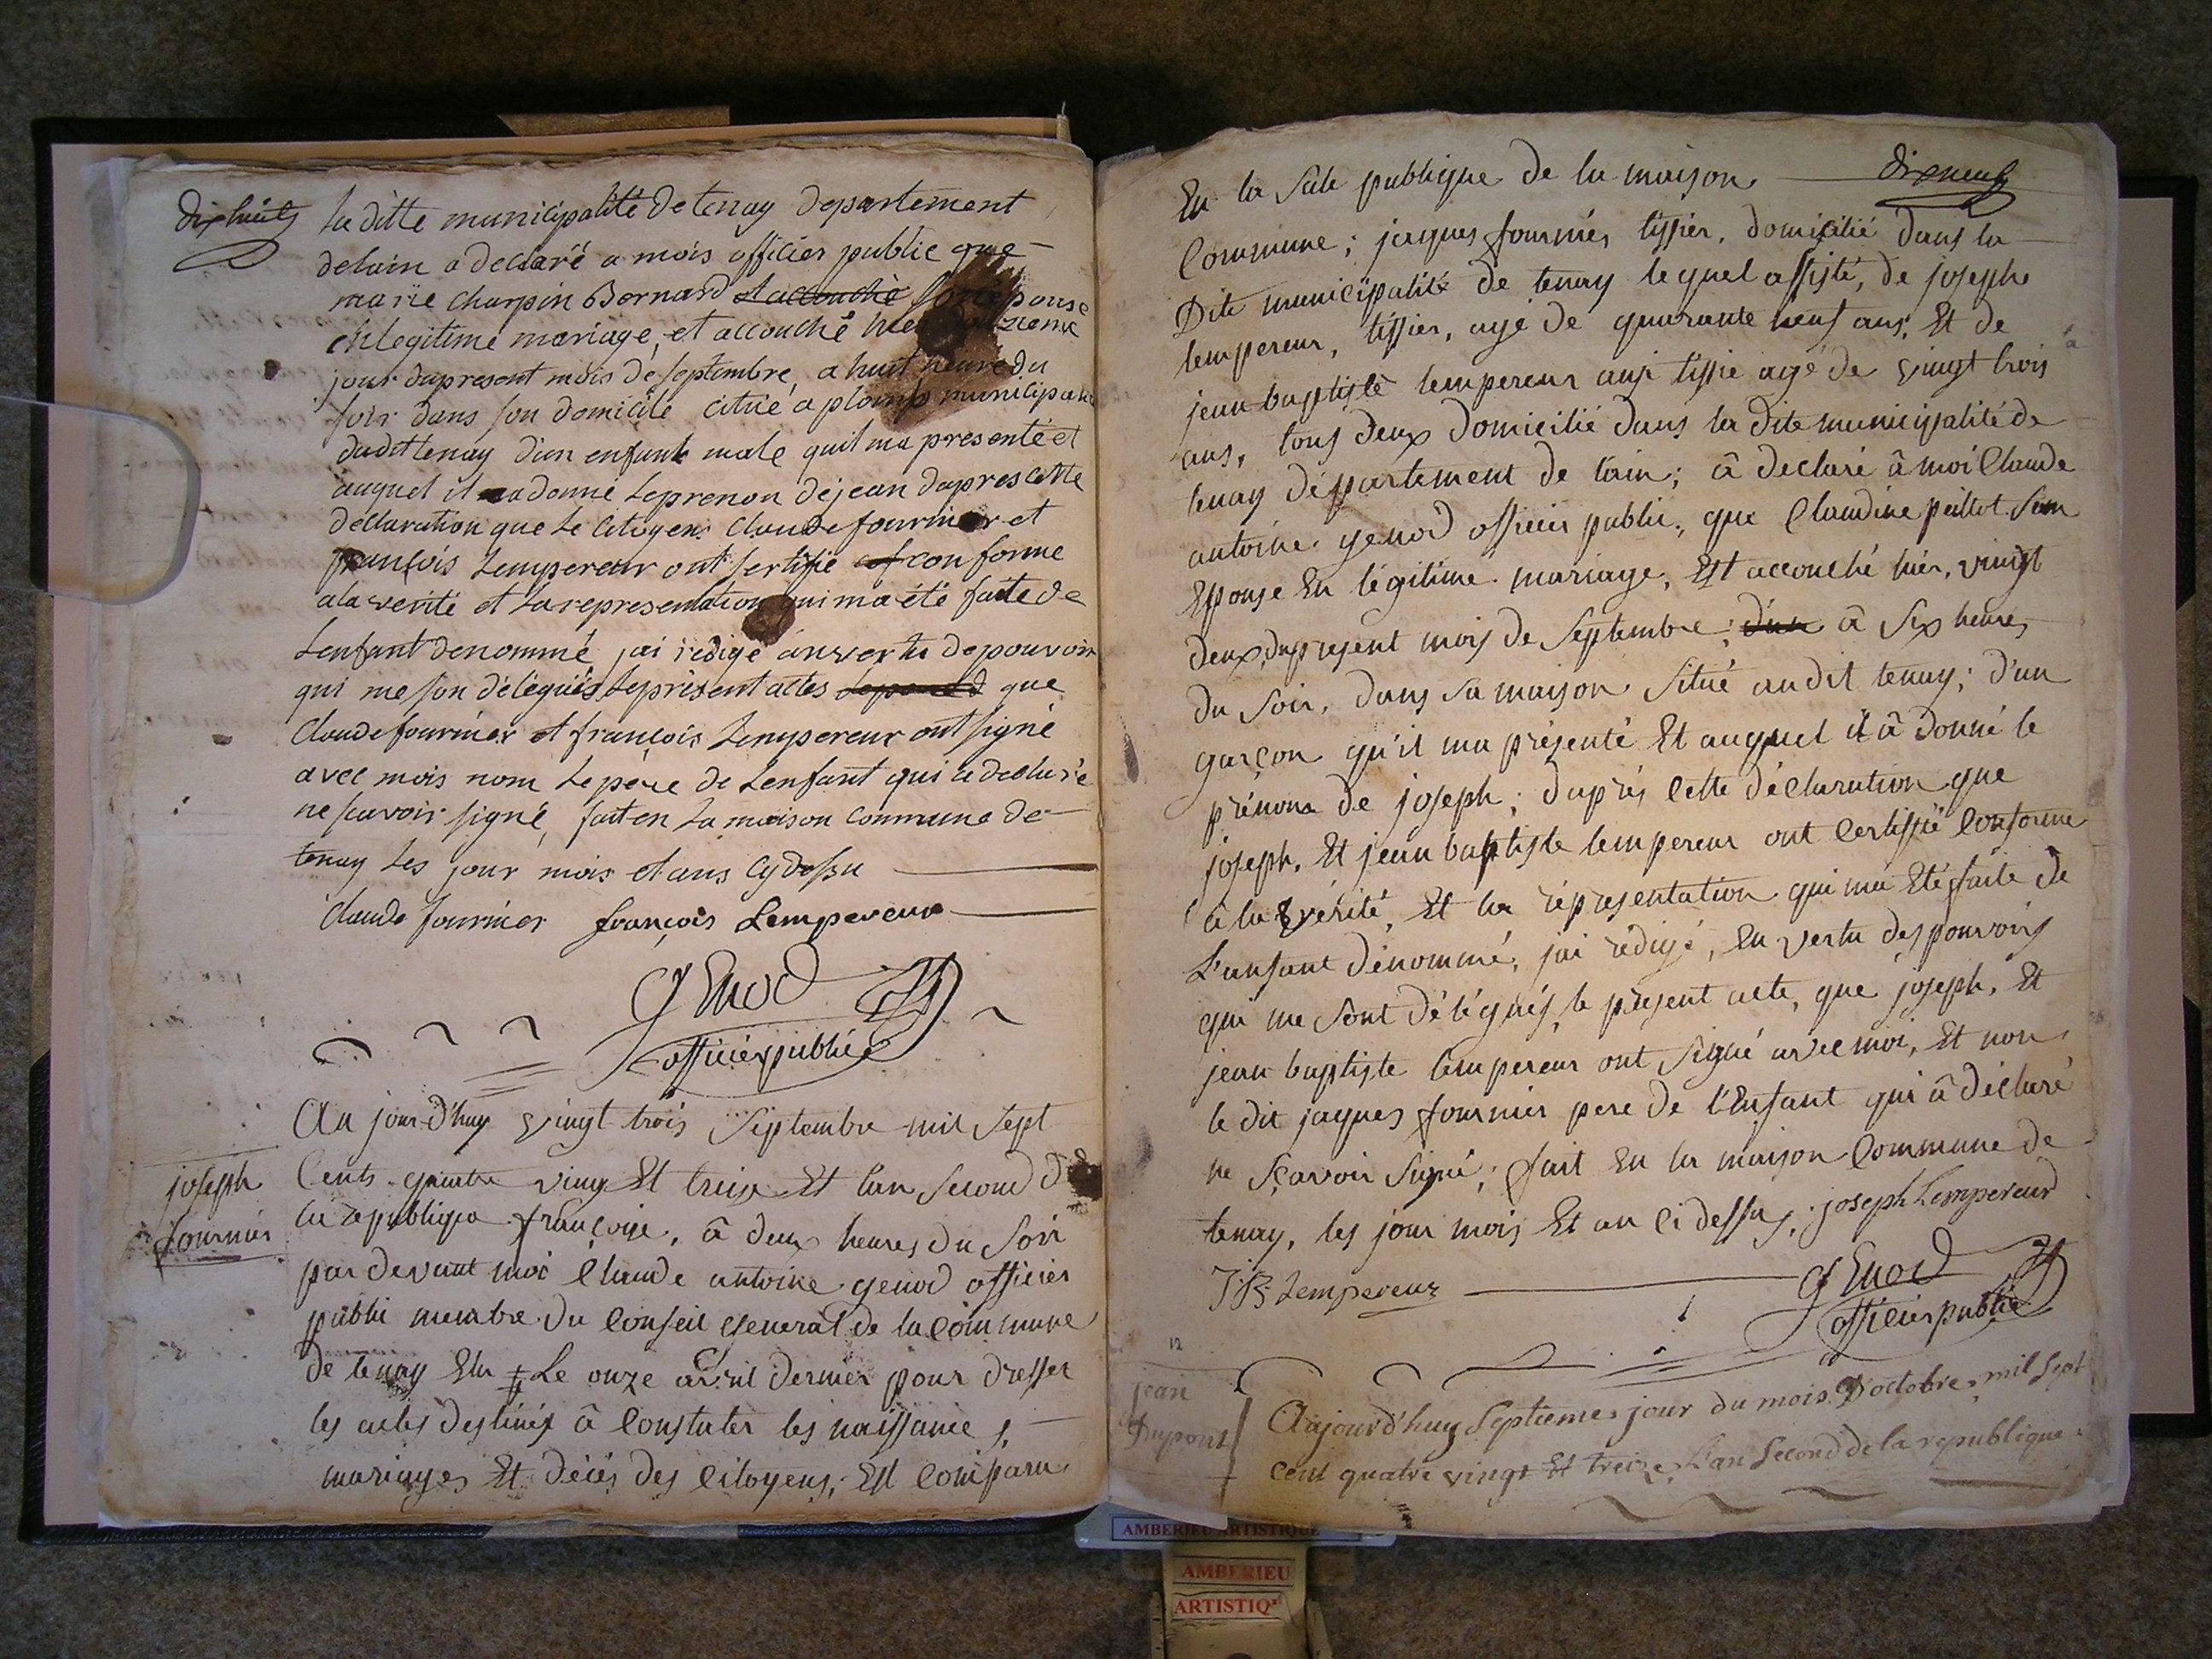 dixhuits
la ditte municipalité de tenay departement
delain a declaré a mois officier public que
marie charpin Bernard et accouché son épouse
en legitime mariage, et accouché hier
jour dupresent mois de septembre, a huit heure du
soir dans son domicile citué a plomb municipalité
dudit tenay d'un enfant male quil ma presenté et
auquel il a donné le prenon de jean dapres cette
declaration que le citoyen claude fournier et
françois Lempereur ont sertifié conforme
a la verité et la representation qui ma été faite de
Lenfant denommé jai redigé en vertu de pouvoir
qui me son délégués le présent actes que
Claude fournier et françois Lempereur ont signé
avec mois nom le père de Lenfant qui a declaré
ne scavoir signé, fait en la maison commune de
tenay les jour mois et ans cy dessu
claude fournier françois Lempereur
Genod
officier public
joseph
fournier
Au jourd'huy vingt trois Septembre mil Sept
Cents quatre ving Et treize Et lan second de
la republique françoise, â deux heures du Soir
par devant moi Claude antoine genod officier
publi membre du Conseil general de la Commune
de tenay Elu Le onze avril dernier pour dresser
les actes destinés â Constater les naissances,
mariages Et décès des Citoyens, Est Comparu
dixneuf
En la Sale publique de la maison
Commune; jaques fournier tissier, domicilié dans la
Dite municipalité de tenay lequel assisté, de joseph
lempereur, tissier, agé de quarante neuf ans, Et de
jean baptiste lempereur ausi tissié agé de vingt trois
ans, tous deux domicilié dans la dite municipalité de
tenay département de l'ain; â declaré â moi Claude
antoine genod officier public, que Claudine peillot son
Epouse En légitime mariage, Est accouché hier, vingt
deux, du present mois de Septembre; d'un â Six heures
du Soir, dans sa maison Situé audit tenay; d'un
garçon qu'il ma présenté Et auquel il â donné le
prénom de joseph; d'aprés Cette déclaration que
joseph, Et jean baptiste lempereur ont Certiffié Conforme
à la vérité, Et la réprésentation qui ma Eté faite de
L'anfant dénommé, jai rédigé, En vertu des pouvoirs
qui me Sont délégués, le present acte, que joseph, Et
jean baptiste lempereur ont Signé avec moi, Et non
le dit jaques fournier pere de l'Enfant qui â déclaré
ne sçavoir Signé; fait En la maison Commune de
tenay, les jour mois Et an Ci dessus, joseph Lempereur
J B Lempereur
Genod
officier public
12
jean
Dupont
Aujourd'huy Septieme jour du mois D'octobre, mil Sept
cent quatre vingt Et treize, L'an Second de la republique
AMBERIEU ARTISTIQUE
AMBERIEU
ARTISTIQ